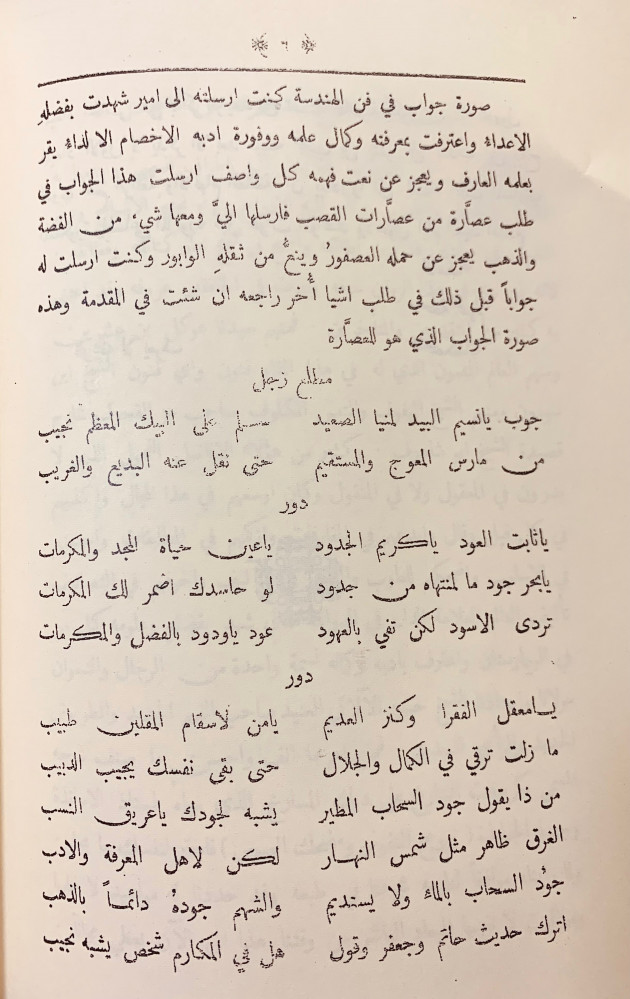 ٦
صورة جواب في فن الهندسة كنت ارسلته الى امير شهدت بفضلهِ
الاعداءُ واعترفت بمعرفته وكمال علمه ووفورة ادبه الاخصام الالداءُ يقر
بعلمه العارف ويعجز عن نعت فهمه كل واصف ارسلت هذا الجواب في
طلب عصَّارة من عصَّارات القصب فارسلها اليَّ ومعها شيءٌ من الفضة
والذهب يعجز عن حمله العصفورُ وينخُّ من ثقلهِ الوابور وكنت ارسلت له
جواباً قبل ذلك في طلب اشيا أُخر راجعه ان شئت في المقدمة وهذه
صورة الجواب الذي هو للعصَّارة
مطلع زجل
جوب يانسيم البيد لمنيا الصعيد سلم على البيك المعظم نجيب
من مارس المعوج والمستقيم حتى نقل عنه البديع والغريب
دور
ياثابت العود ياكريم الجدود ياعين حياة المجد والمكرمات
يابحر جود ما لمنتهاه من حدود لو حاسدك اضمر لك المكرمات
تردى الاسود لكن تفي بالعهود عود ياودود بالفضل والمكرمات
دور
يامعقل الفقرا وكنز العديم يامن لاسقام المقلين طبيب
ما زلت ترقي في الكمال والجلال حتى بقى نفسك يجيب الدبيب
من ذا يقول جود السحاب المطير يشبه لجودك ياعريق النسب
الفرق ظاهر مثل شمس النهار لكن لاهل المعرفة والادب
جوْد السحاب بالماءِ ولا يستديم والشهم جودهُ دائماً بالذهب
اترك حديث حاتم وجعفر وقول هل في المكارم شخص يشبه نجيب